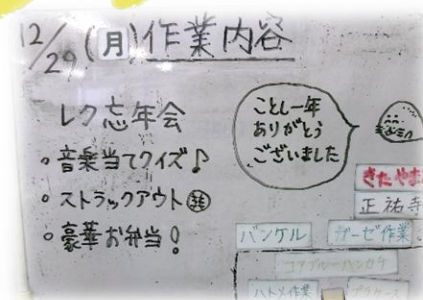 12/29(月)作業内容
レク忘年会
・音楽当てクイズ♪
・ストラックアウト
・豪華お弁当!
ことし一年
ありがとう
ございました
きたやま
正祐寺
バンケル
ガーゼ作業
ハトメ作業
プラケース